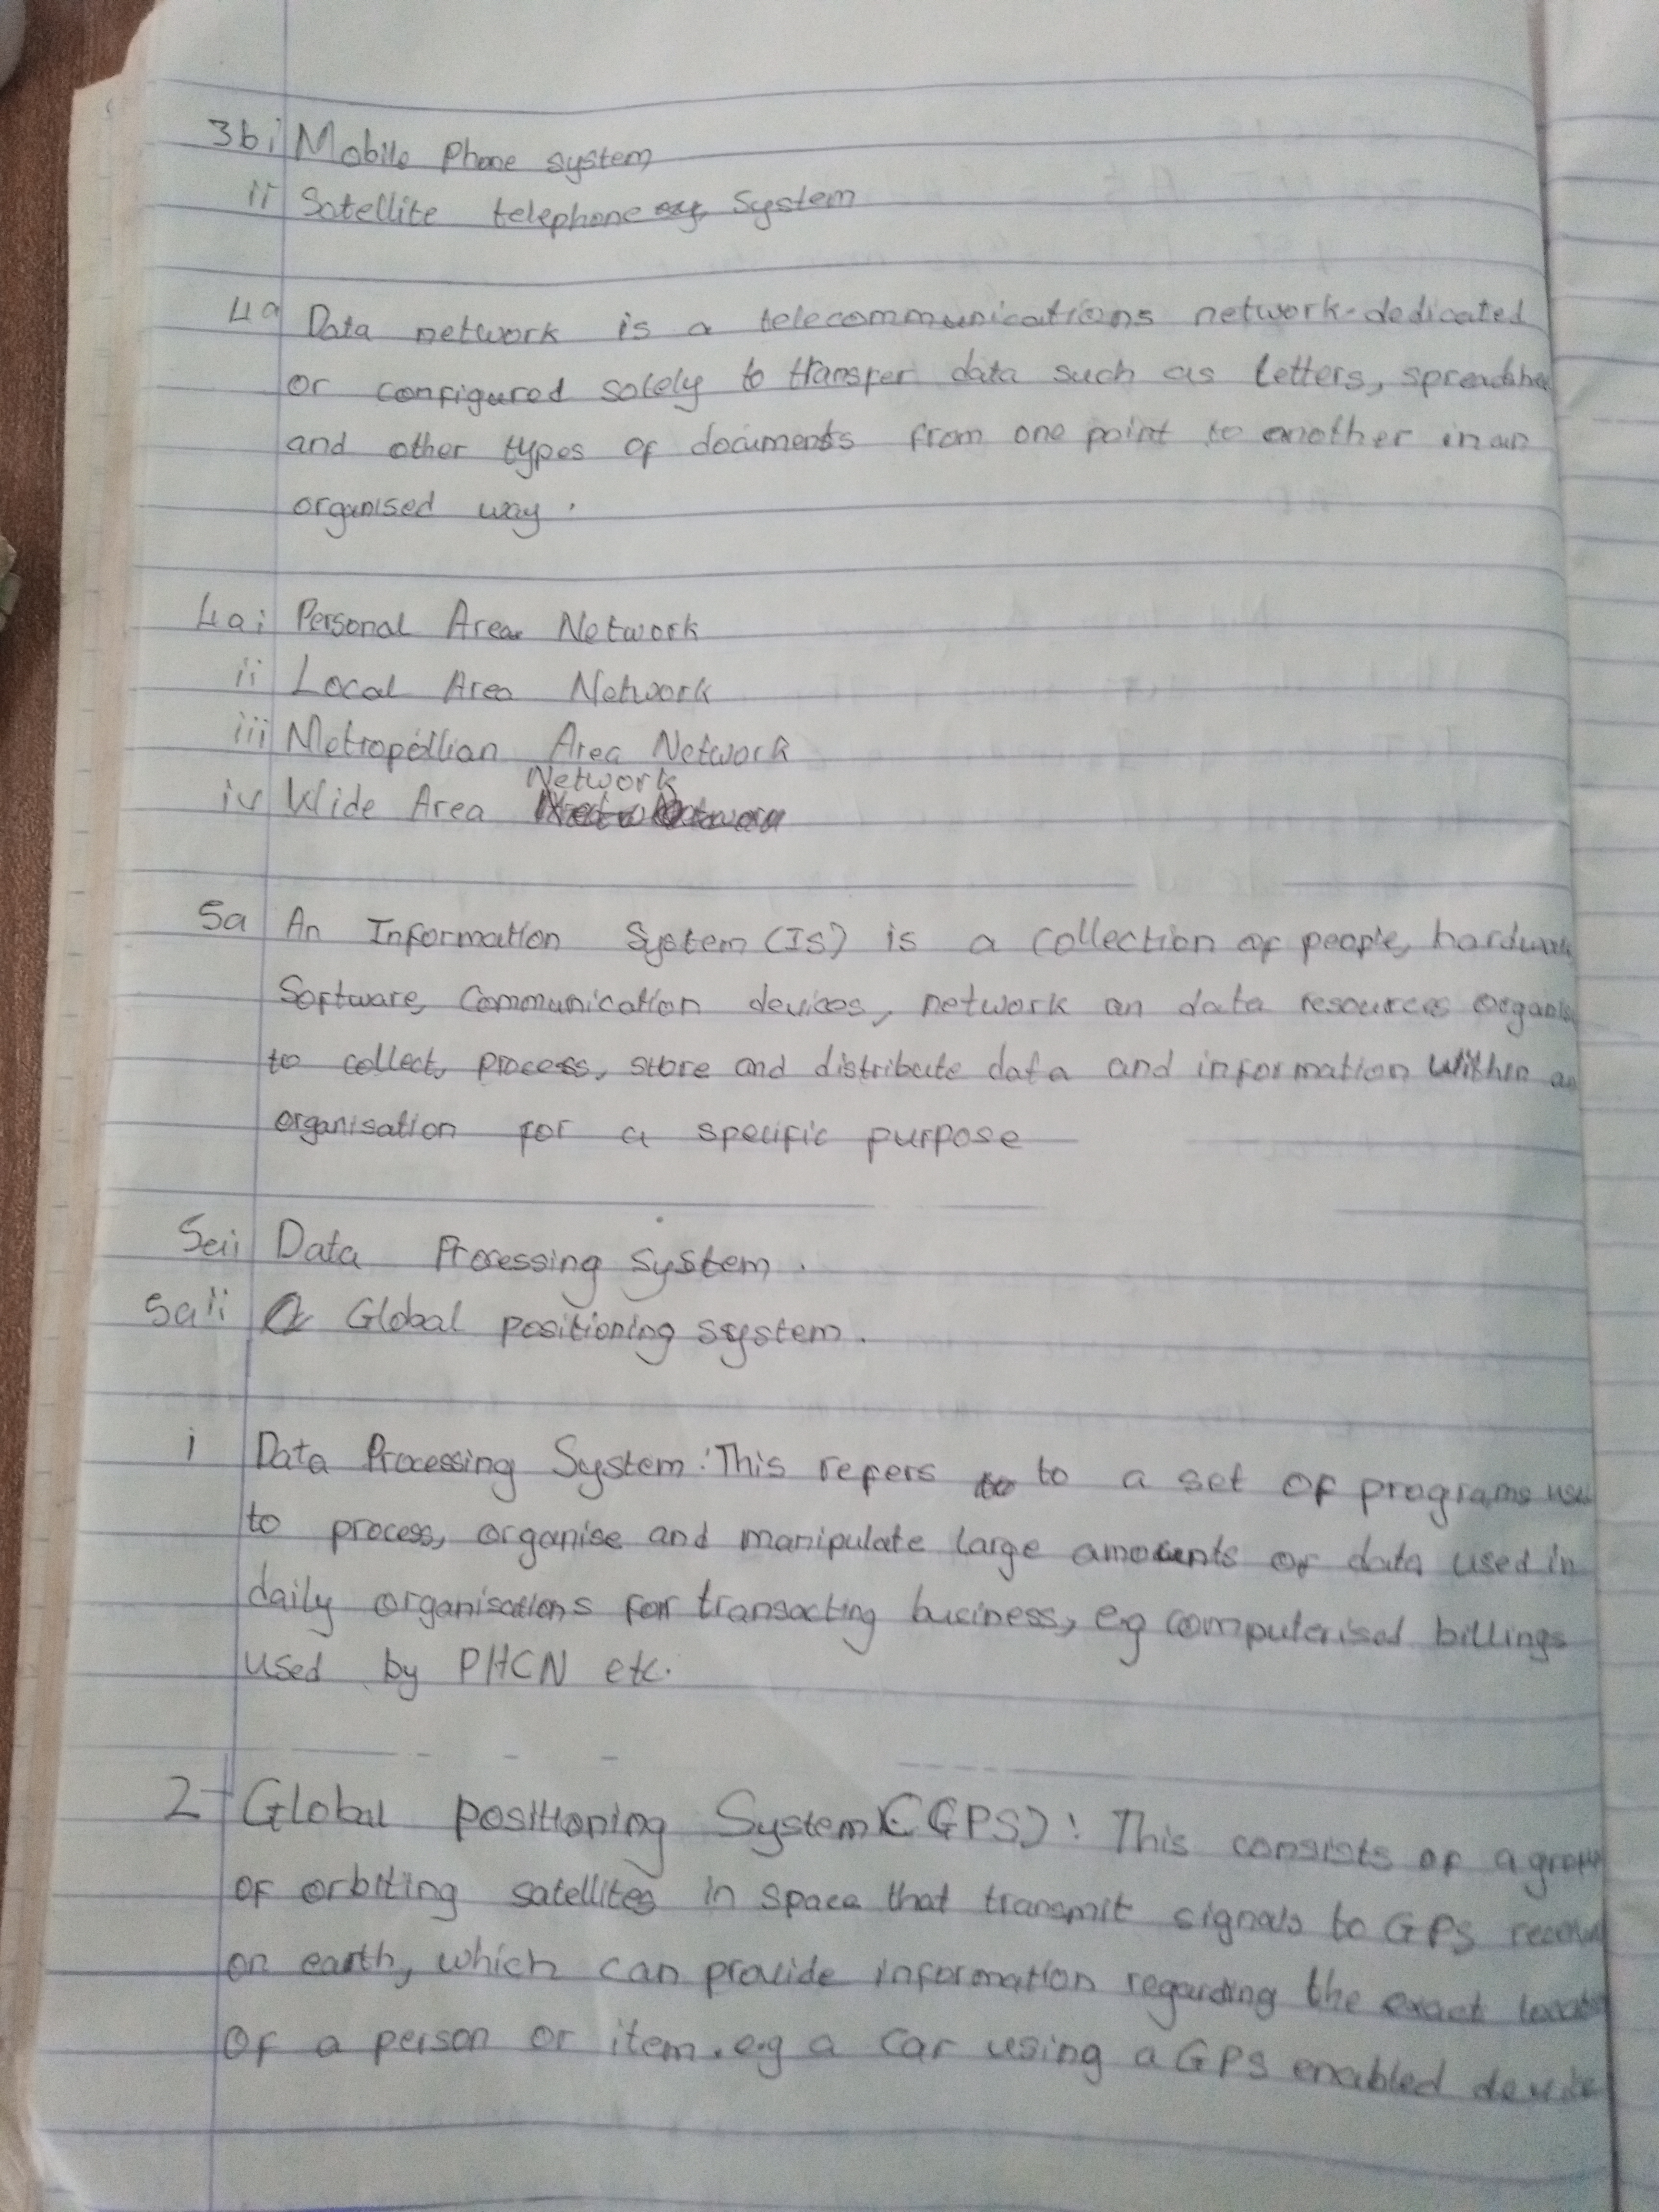 3bi Mobile Phone system
ii Satellite telephone system
4a Data network is a telecommunications network dedicated
or configured solely to transfer data such as letters,
and other types of documents from one point to another in an
organised way.
4ai Personal Area Network
ii Local Area Network
iii Metropollian Area Network
iv Wide Area Network
5a An Information System (IS) is a collection of people,
Software, Communication devices, network an data resources
to collect, process, store and distribute data and information within
organisation for a specific purpose
5aii Data Processing system.
5aii Global positioning system.
i Data Processing System: This refers to a set of programs
to process, organise and manipulate large amounts of data used in
daily organisations for transacting business, eg computerised billings
used by PHCN etc.
2 Global positioning System (GPS): This consists of a
of orbiting satellites in space that transmit signals to GPS
on earth, which can provide information regarding the exact
of a person or item. e.g a car using a GPS enabled device